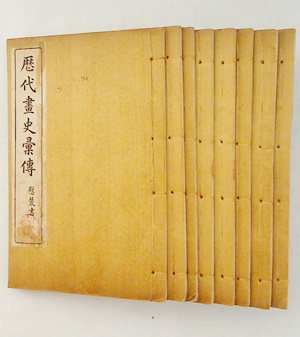 歴代畫史彙傳